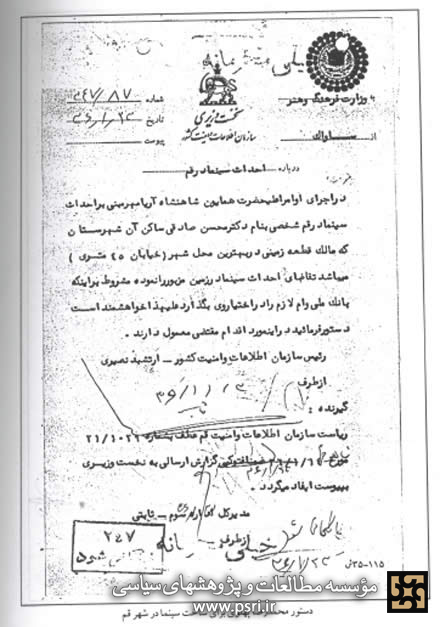 خیلی محرمانه
به وزارت فرهنگ و هنر
نخست وزیری
سازمان اطلاعات و امنیت کشور
شماره ۲۴۷/۸۷
تاریخ
پیوست
از ساواک
درباره احداث سینما در قم
در اجرای اوامر اعلیحضرت همایون شاهنشاه آریامهر مبنی بر احداث
سینما در قم شخصی بنام دکتر محسن صادقی ساکن آن شهرستان
که مالک قطعه زمینی در بهترین محل شهر (خیابان ۴۵ متری)
میباشد تقاضای احداث سینما در زمین مزبور را نموده مشروط بر اینکه
بانک ملی وام لازم را در اختیار وی بگذارد علیهذا خواهشمند است
دستور فرمائید در اینمورد اقدام مقتضی معمول دارند .
رئیس سازمان اطلاعات و امنیت کشور - ارتشبد نصیری
از طرف
گیرنده :
ریاست سازمان اطلاعات و امنیت قم عطف بشماره ۲۱/۱۰۲۶
گزارش ارسالی به نخست وزیری
بپیوست ایفاد میگردد .
مدیرکل اداره کل سوم - ثابتی
از طرف
خیلی محرمانه
۲۴۷
۳۵-۱۱۵
مؤسسه مطالعات و پژوهشهای سیاسی
www.psri.ir
دستور محمدرضا پهلوی برای ساخت سینما در شهر قم